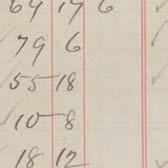 64 17 6
79 6
55 18
10 8
18 12